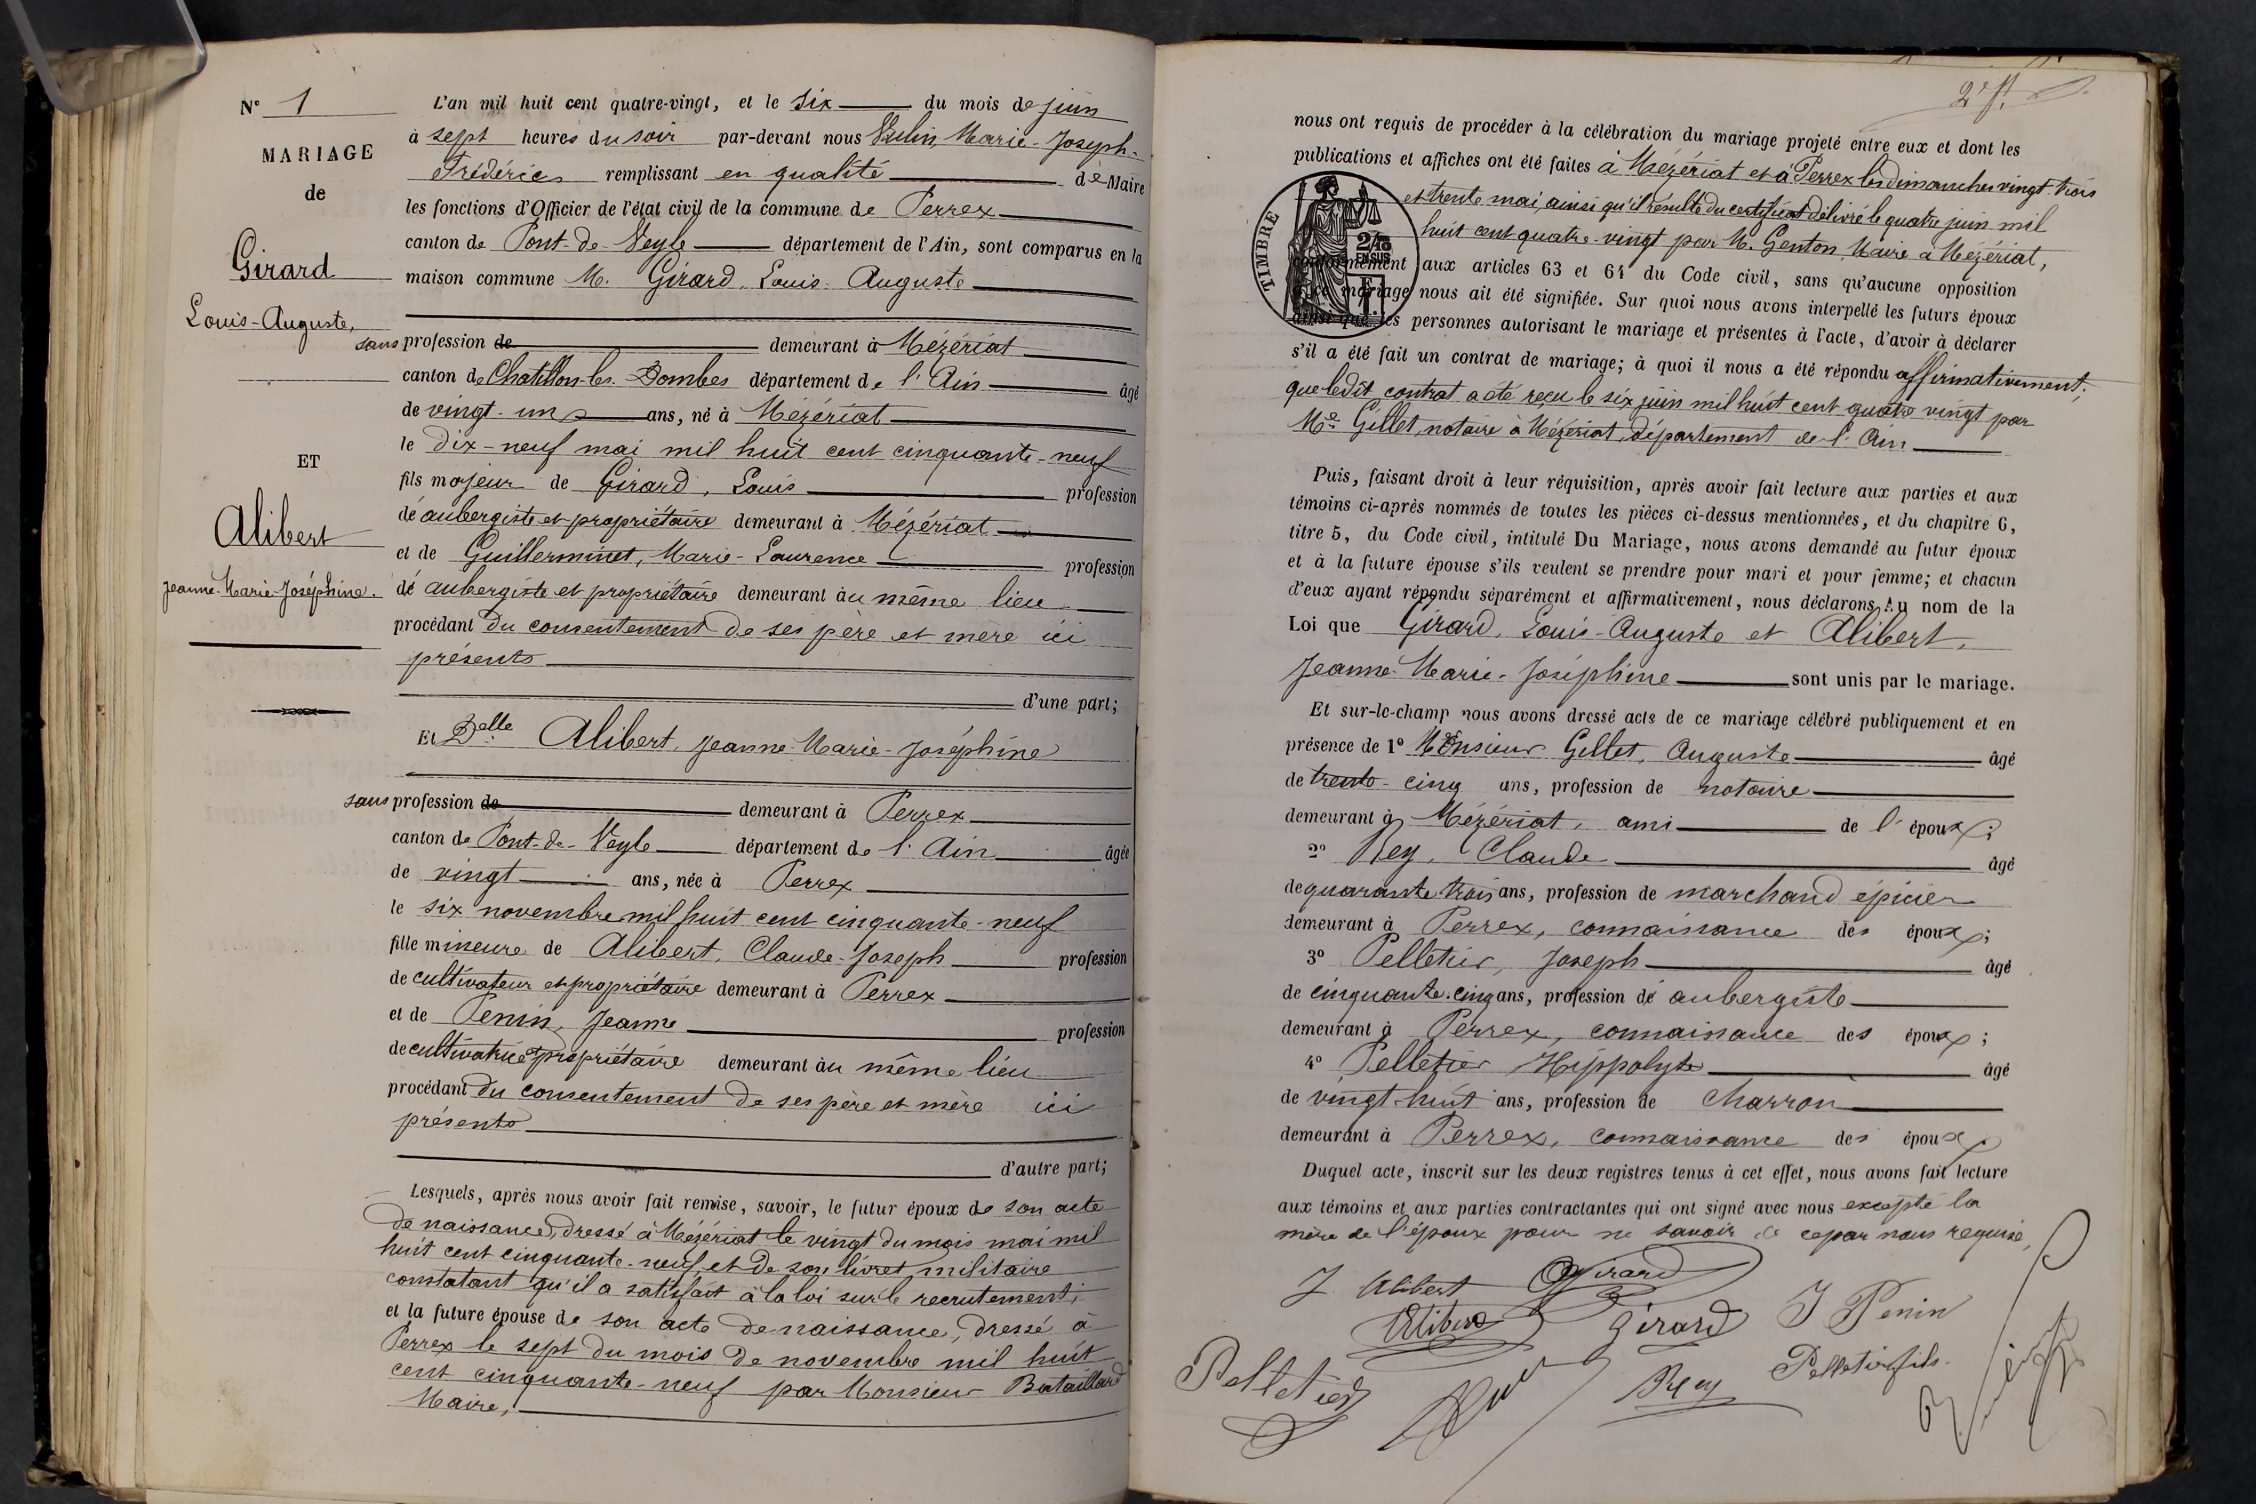 N° 1
MARIAGE
de
Girard
Louis-Auguste,
ET
Alibert
Jeanne-Marie-Joséphine.
L'an mil huit cent quatre-vingt, et le six du mois de juin
à sept heures du soir par-devant nous Vulin, Marie-Joseph-
Frédéric remplissant en qualité de Maire
les fonctions d'Officier de l'état civil de la commune de Perrex
canton de Pont-de-Veyle département de l'Ain, sont comparus en la
maison commune M. Girard, Louis-Auguste
sans profession de demeurant à Mézériat
canton de Chatillon-les-Dombes département de l'Ain âgé
de vingt-un ans, né à Mézériat
le dix-neuf mai mil huit cent cinquante-neuf
fils majeur de Girard, Louis profession
dé aubergiste et propriétaire demeurant à Mézériat
et de Guillerminet, Marie-Laurence profession
dé aubergiste et propriétaire demeurant au même lieu
procédant du consentement de ses père et mère ici
présents
d'une part;
Et Delle Alibert, Jeanne-Marie-Joséphine
sans profession de demeurant à Perrex
canton de Pont-de-Veyle département de l'Ain âgée
de vingt ans, née à Perrex
le six novembre mil huit cent cinquante-neuf
fille mineure de Alibert, Claude-Joseph profession
de cultivateur et propriétaire demeurant à Perrex
et de Penin, Jeanne profession
de cultivatrice et propriétaire demeurant au même lieu
procédant du consentement de ses père et mère ici
présents
d'autre part;
Lesquels, après nous avoir fait remise, savoir, le futur époux de son acte
de naissance, dressé à Mézériat le vingt du mois mai mil
huit cent cinquante-neuf et de son livret militaire
constatant qu'il a satisfait à la loi sur le recrutement;
et la future épouse de son acte de naissance, dressé à
Perrex le sept du mois de novembre mil huit
cent cinquante-neuf par Monsieur Bataillard
Maire,
2e f.
nous ont requis de procéder à la célébration du mariage projeté entre eux et dont les
publications et affiches ont été faites à Mézériat et à Perrex les dimanches vingt-trois
et trente mai, ainsi qu'il résulte du certificat délivré le quatre juin mil
huit cent quatre-vingt par M. Genton, Maire à Mézériat,
TIMBRE
2/10
EN SUS
conformément aux articles 63 et 64 du Code civil, sans qu'aucune opposition
à ce mariage nous ait été signifiée. Sur quoi nous avons interpellé les futurs époux
ainsi que les personnes autorisant le mariage et présentes à l'acte, d'avoir à déclarer
s'il a été fait un contrat de mariage; à quoi il nous a été répondu affirmativement;
que ledit contrat a été reçu le six juin mil huit cent quatre vingt par
Me Gellet, notaire à Mézériat, département de l'Ain
Puis, faisant droit à leur réquisition, après avoir fait lecture aux parties et aux
témoins ci-après nommés de toutes les pièces ci-dessus mentionnées, et du chapitre 6,
titre 5, du Code civil, intitulé Du Mariage, nous avons demandé au futur époux
et à la future épouse s'ils veulent se prendre pour mari et pour femme; et chacun
d'eux ayant répondu séparément et affirmativement, nous déclarons Au nom de la
Loi que Girard, Louis-Auguste et Alibert,
Jeanne-Marie-Joséphine sont unis par le mariage.
Et sur-le-champ nous avons dressé acte de ce mariage célébré publiquement et en
présence de 1° Monsieur Gellet, Auguste âgé
de trente-cinq ans, profession de notaire
demeurant à Mézériat, ami de l'époux;
2° Rey, Claude âgé
de quarante-trois ans, profession de marchand épicier
demeurant à Perrex, connaissance des époux;
3° Pelletier, Joseph âgé
de cinquante-cinq ans, profession dé aubergiste
demeurant à Perrex, connaissance des époux;
4° Pelletier Hippolyte âgé
de vingt-huit ans, profession de charron
demeurant à Perrex, connaissance des époux
Duquel acte, inscrit sur les deux registres tenus à cet effet, nous avons fait lecture
aux témoins et aux parties contractantes qui ont signé avec nous excepté la
mère de l'époux pour ne savoir de ce par nous requise,
J. Alibert Girard
Alibert Girard J Penin
Pelletier Rey Pelletier fils